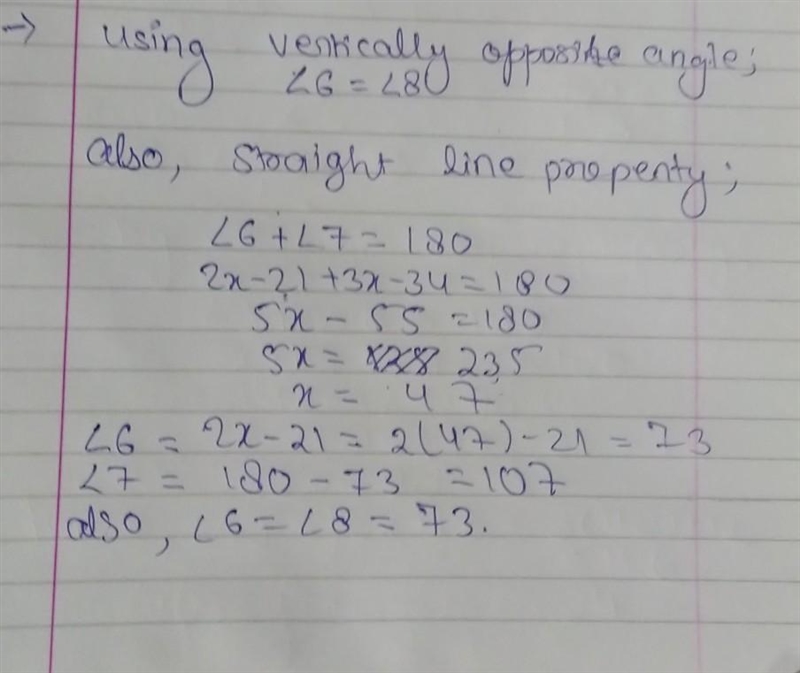 → using vertically opposite angle;
∠6 = ∠8
also, straight line property;
∠6 + ∠7 = 180
2x - 21 + 3x - 34 = 180
5x - 55 = 180
5x = 235
x = 47
∠6 = 2x - 21 = 2(47) - 21 = 73
∠7 = 180 - 73 = 107
also, ∠6 = ∠8 = 73.